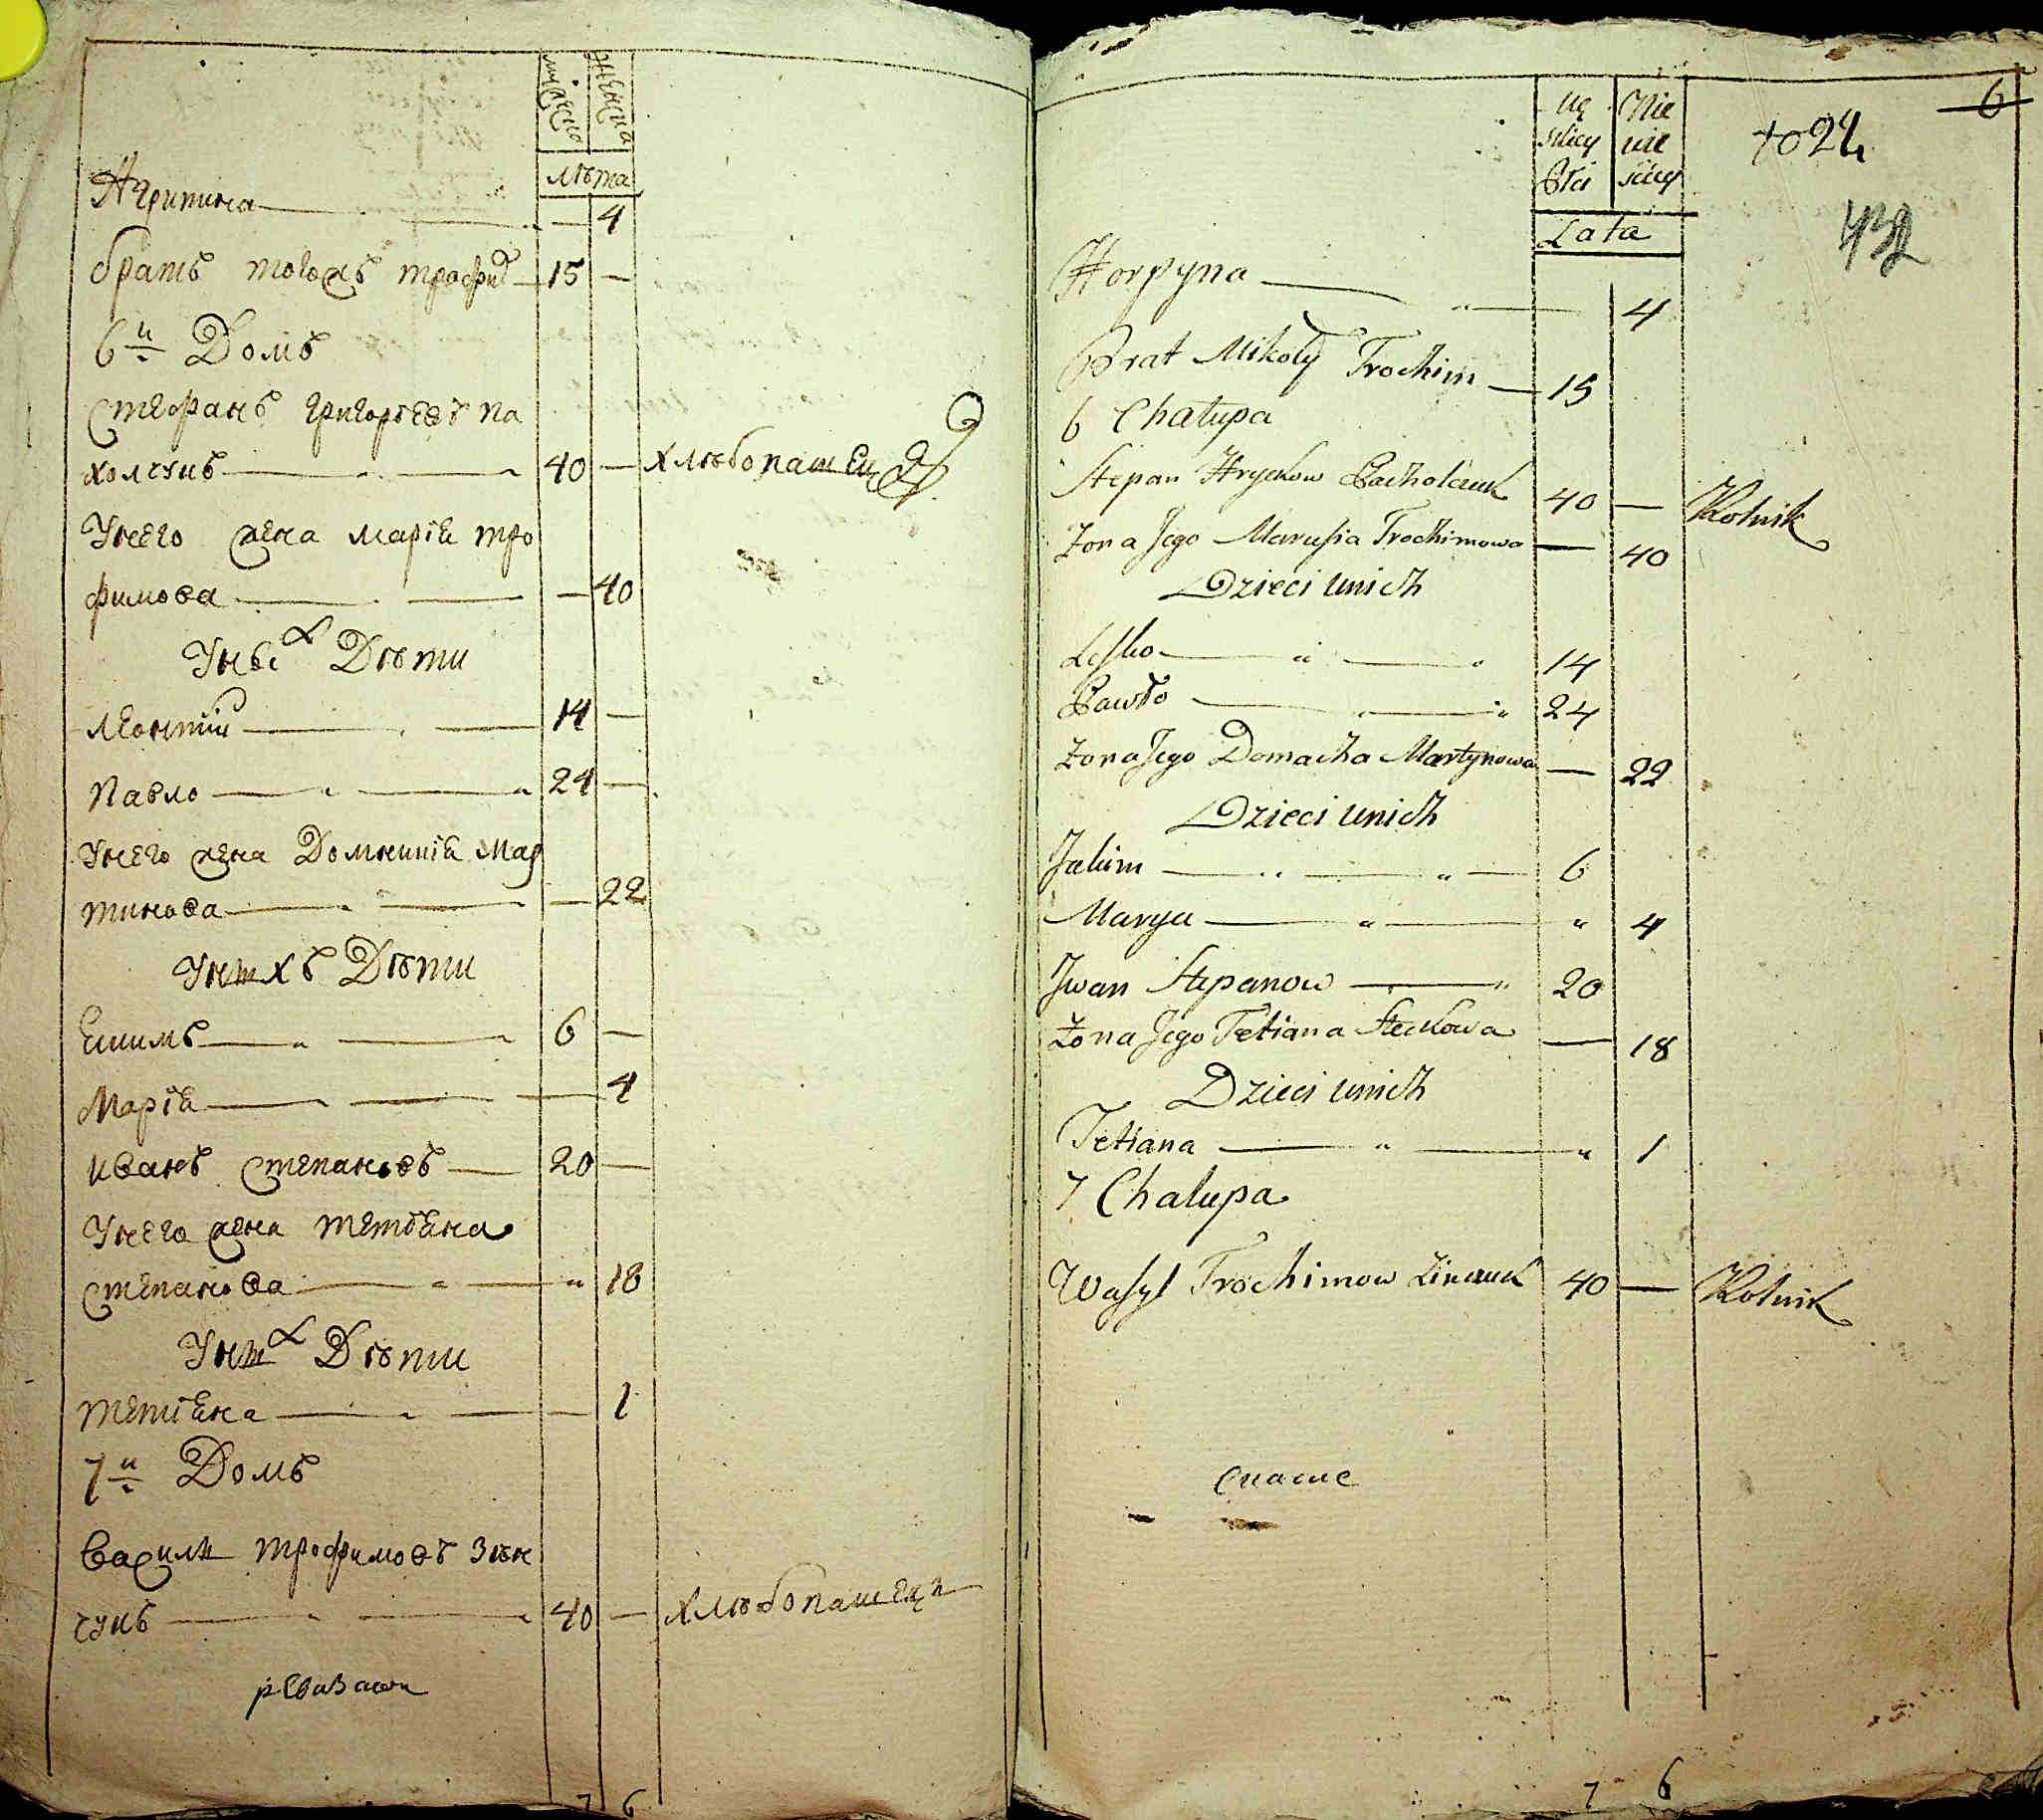 мужеска женска
лѣта
Агрипина 4
братъ тогожъ трофим 15 —
6й Домъ
Стефанъ григорьевъ па
холчукъ 40 — хлѣбопашец
Унего жена мария тро
фимова — 40
Унихъ Дѣти
леонтий 14 —
павло 24 —
Унего жена Домникия мар
тинова — 22
Унихъ Дѣти
Екимъ 6 —
Мария 4
иванъ степановъ 20 —
Унего жена тетьяна
степанова " 18
Унихъ Дѣти
тетияна — 1
7й Домъ
василий трофимовъ зѣн
чукъ 40 — хлѣбопашецъ
7 6
6
Mę Nie
skiey wie
Płci sciey
1024
432
Lata
Horpyna 4
Brat Mikoły Trochim 15
6 Chałupa
Stepan Hryckow Pacholczuk 40 — Rolnik
Żona Jego Marusia Trochimowa — 40
Dzieci unich
Lesko 14
Pawło 24
Żona Jego Domacha Martynowa — 22
Dzieci unich
Jakim 6
Marya " 4
Jwan Stepanow 20
Żona Jego Tetiana Steckowa — 18
Dzieci unich
Tetiana " 1
7 Chałupa
Wasyl Trochimow Zinczuk 40 — Rolnik
7 6